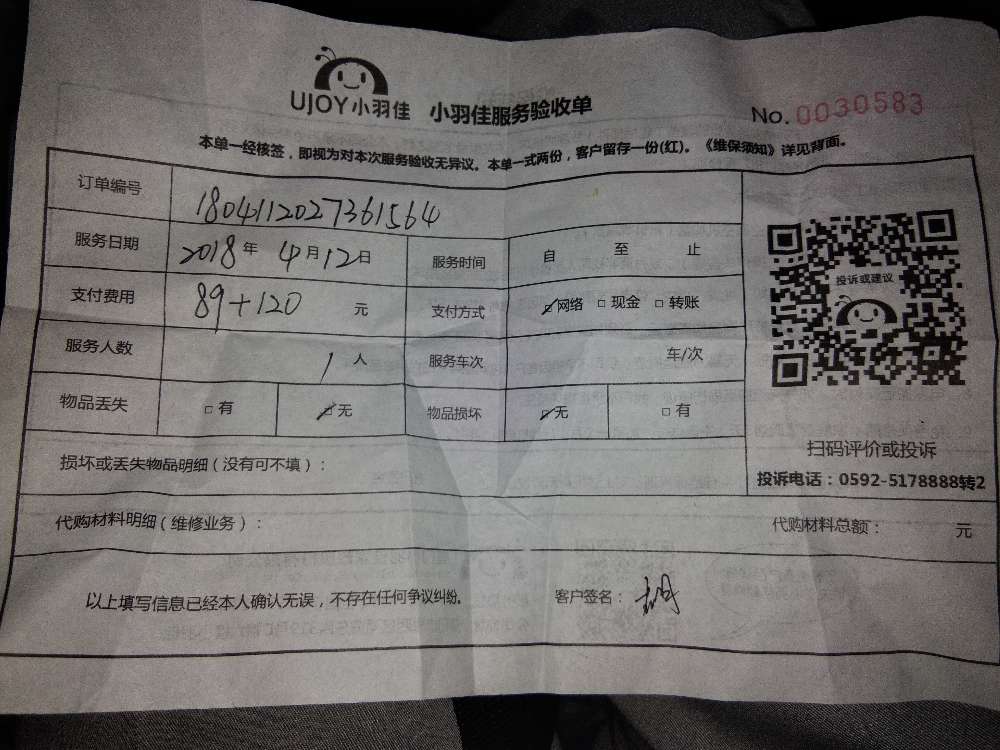 UJOY小羽佳 小羽佳服务验收单
No. 0030583
本单一经核签，即视为对本次服务验收无异议。本单一式两份，客户留存一份(红)。《维保须知》详见背面。
订单编号 1804112027361564
服务日期 2018年4月12日 服务时间 自 至 止
支付费用 89+120 元 支付方式 网络 现金 转账
服务人数 1人 服务车次 车/次
物品丢失 有 无 物品损坏 无 有
投诉或建议
扫码评价或投诉
投诉电话：0592-5178888转2
损坏或丢失物品明细（没有可不填）：
代购材料明细（维修业务）： 代购材料总额： 元
以上填写信息已经本人确认无误，不存在任何争议纠纷。 客户签名：